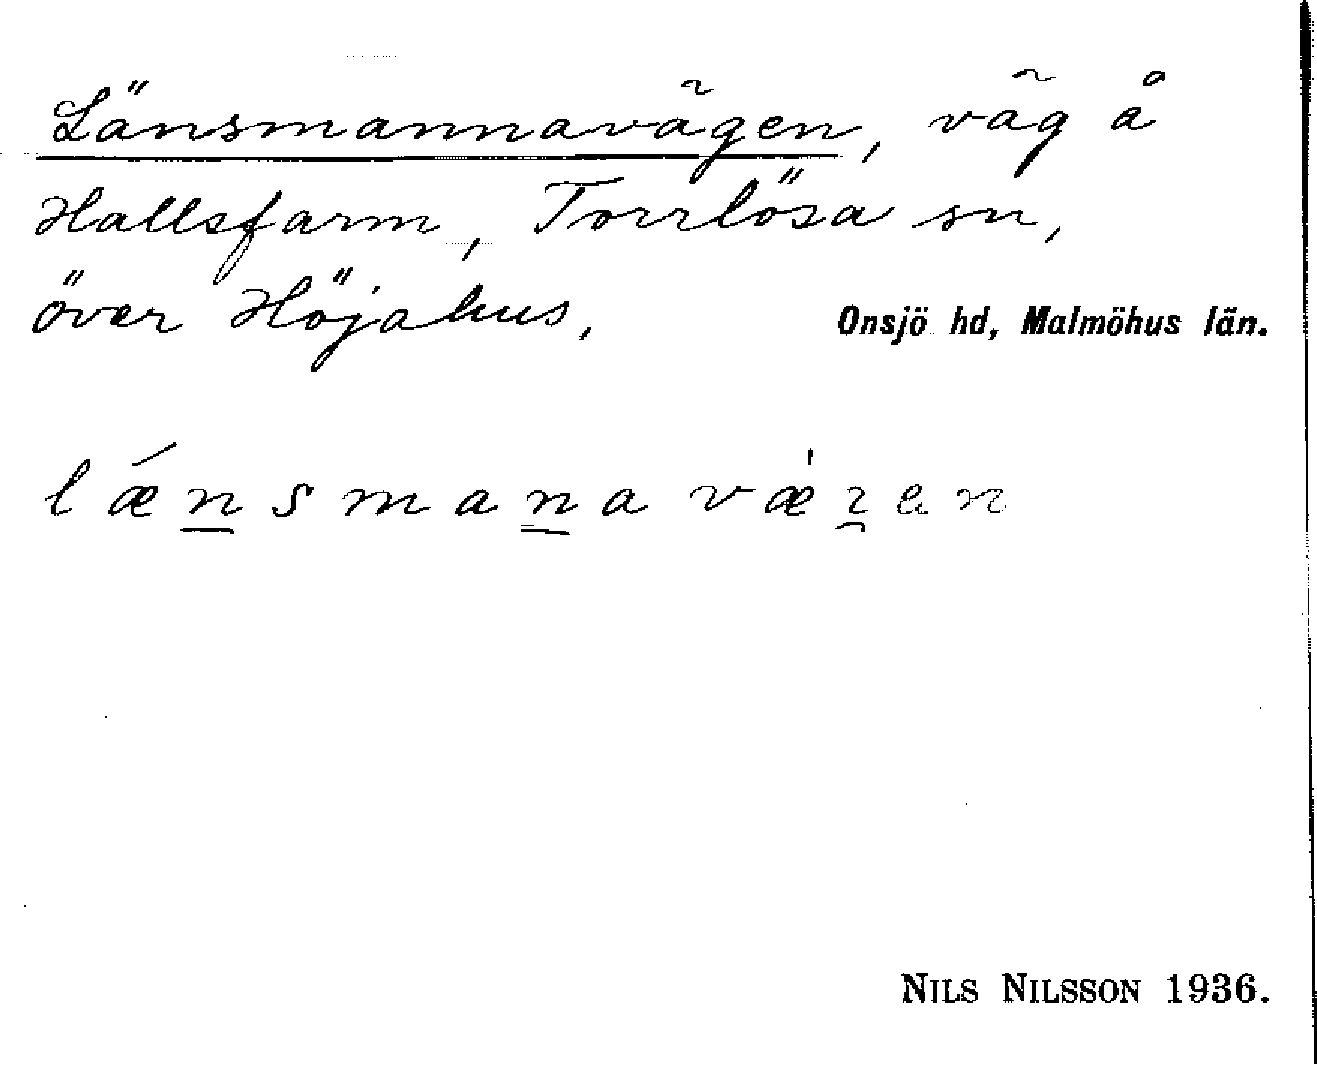 Länsmannavägen, väg å
Hallsfarm, Torrlösa sn,
över Höjahus, Onsjö hd, Malmöhus län.
lǽn̲sman̲avæ̍ɿ̯en
NILS NILSSON 1936.